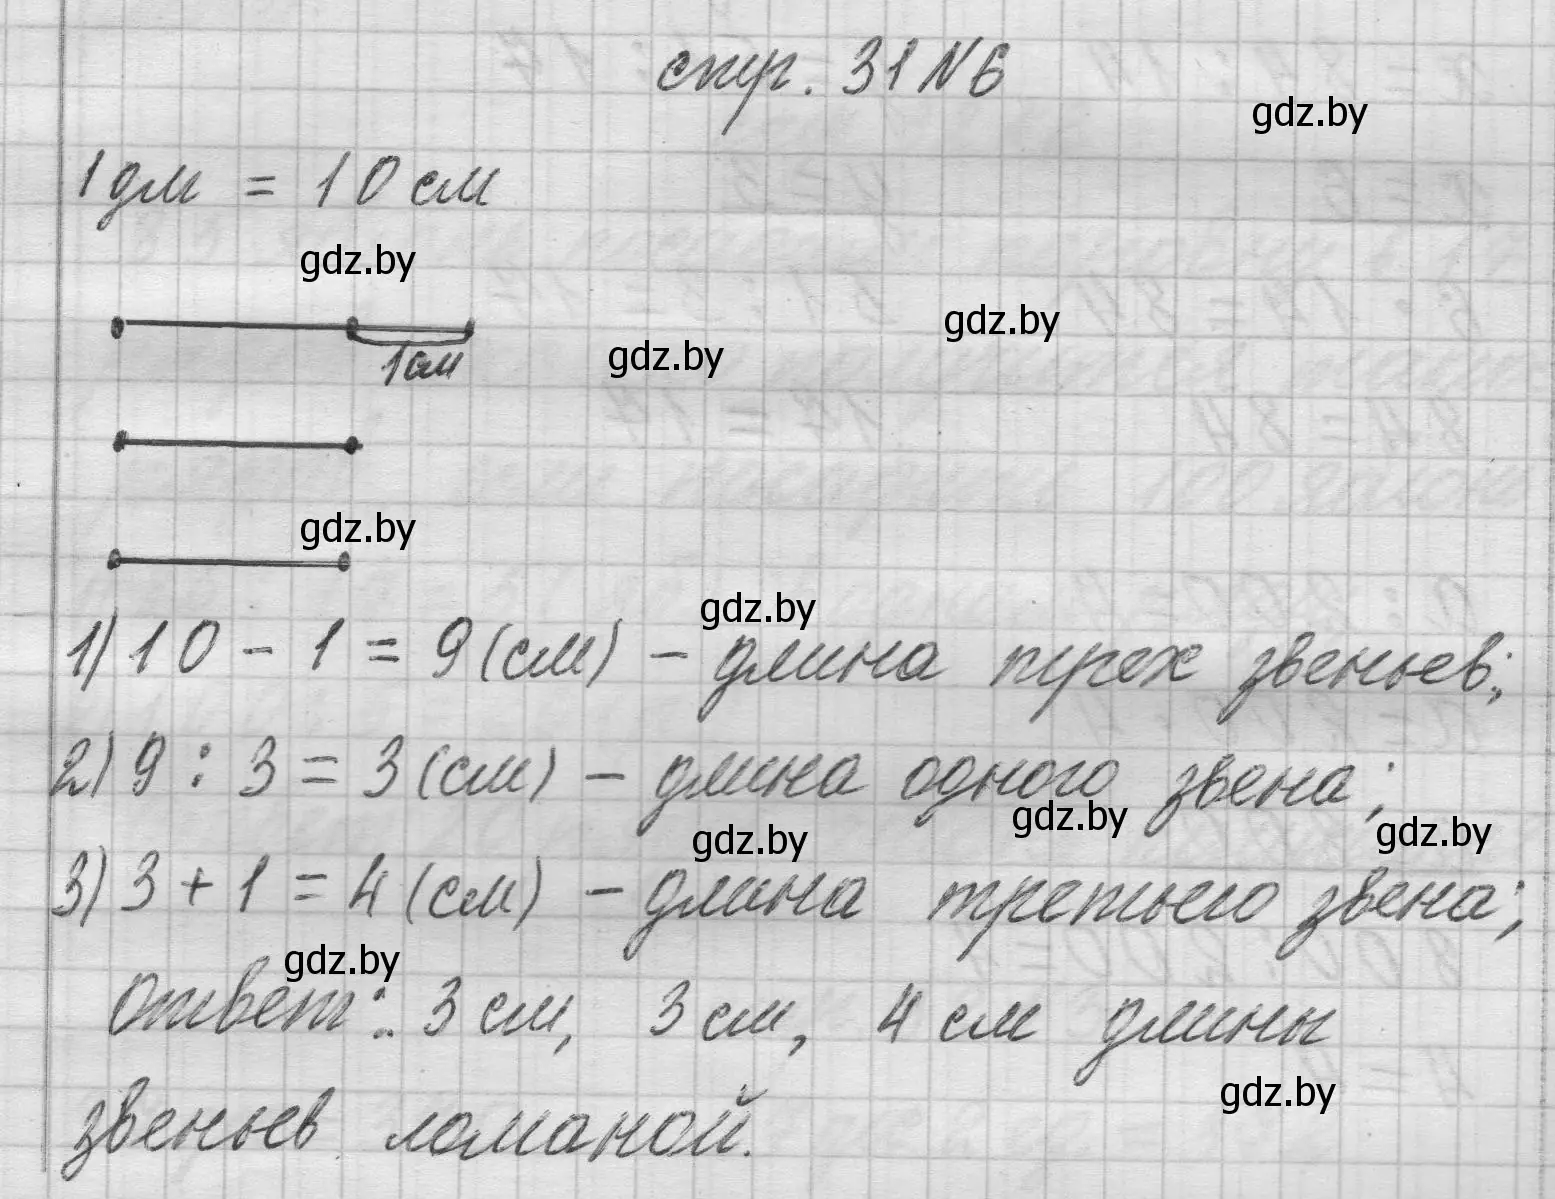 стр. 31 N 6
gdz.by
1 дм = 10 см
gdz.by
gdz.by
1 см
gdz.by
gdz.by
gdz.by
1) 10 - 1 = 9 (см) - длина трех звеньев;
2) 9 : 3 = 3 (см) - длина одного звена;
gdz.by
gdz.by
gdz.by
3) 3 + 1 = 4 (см) - длина третьего звена;
gdz.by
ответ: 3 см, 3 см, 4 см длины
gdz.by
звеньев ломаной.